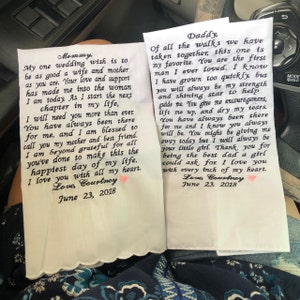 Mommy,
My one wedding wish is to
be as good a wife and mother
as you are. Your love and support
has made me into the woman
I am today. As I start the next
chapter in my life,
I will need you more than ever.
You have always been there
for me and I am blessed to
call you my mother and best friend.
I am beyond grateful for all
you've done to make this the
happiest day of my life.
I love you with all my heart.
Love, Courtney
June 23, 2018
Daddy,
Of all the walks we have
taken together, this one is
my favorite. You are the first
man I ever loved. I know
I have grown too quickly, but
you will always be my strength
and shining star to help
guide me. You give me encouragement,
lift me up, and dry my tears.
You have always been there
for me and I know you always
will be. You might be giving me
away today but I will always be
your little girl. Thank you for
being the best dad a girl
could ask for. I love you
with every inch of my heart.
Love, Courtney
June 23, 2018